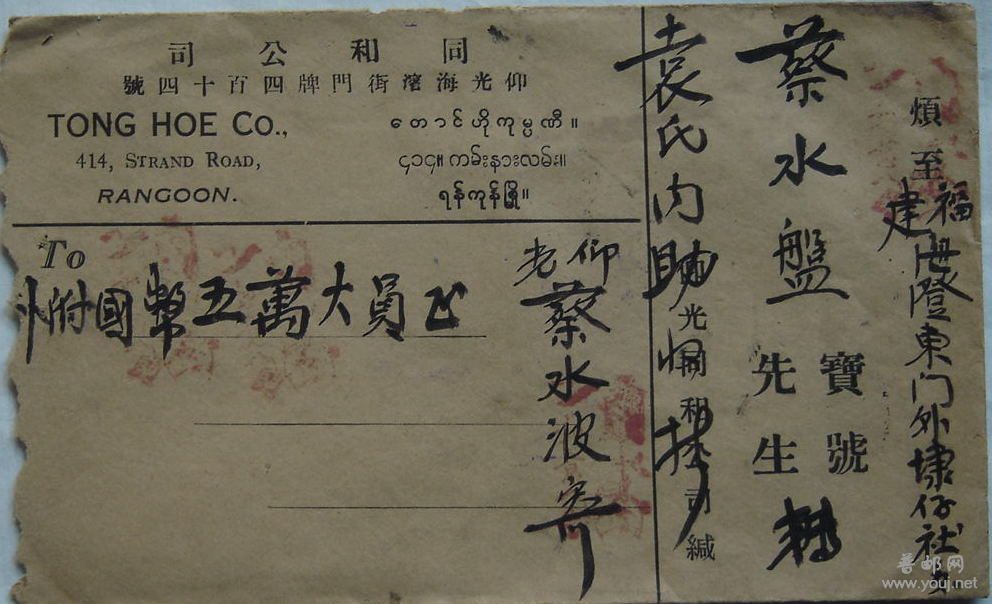 同和公司
仰光海濱街門牌四百十四號
TONG HOE CO.,
414, STRAND ROAD,
RANGOON.
တောင်ဟိုကုမ္ပဏီ။
၄၁၄။ ကမ်းနားလမ်း။
ရန်ကုန်မြို့။
To
外附國幣五萬大員正
仰
老
蔡水波寄
煩至
福建海澄東门外埭仔社
寶號
蔡水盤先生
袁氏內助
光同和公司緘
普邮网
www.youj.net